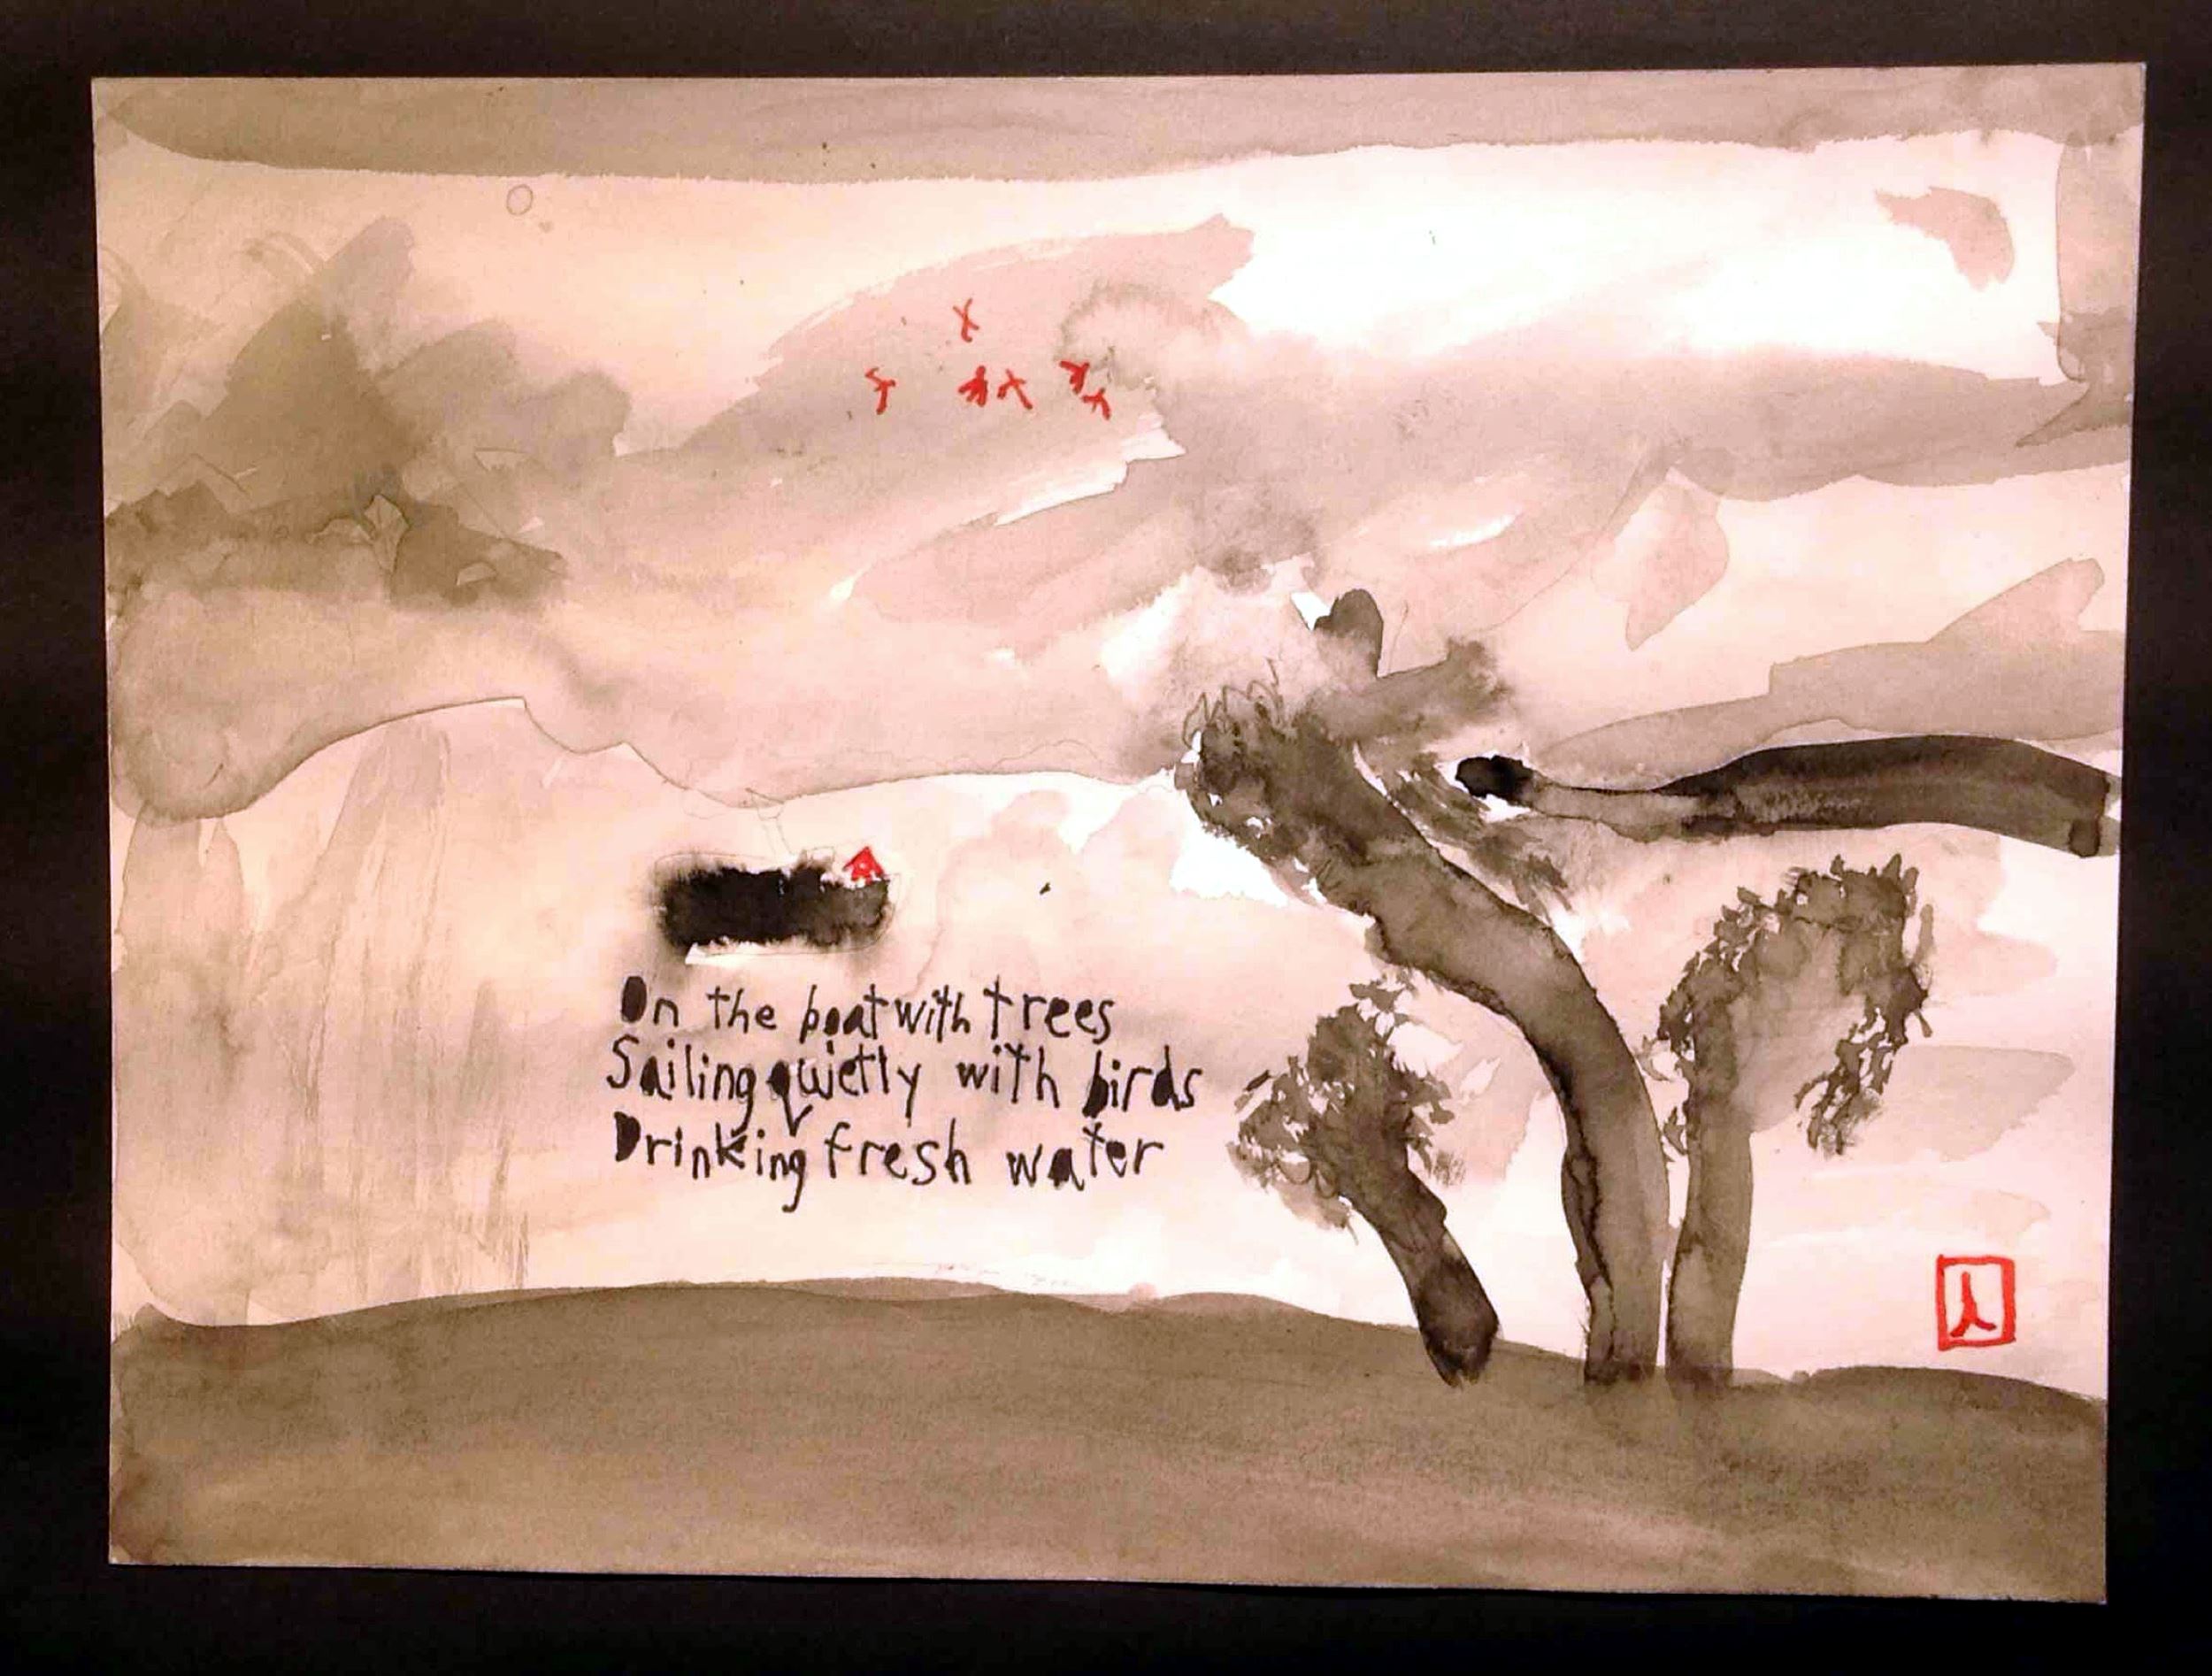 On the boat with trees
Sailing quietly with birds
Drinking fresh water